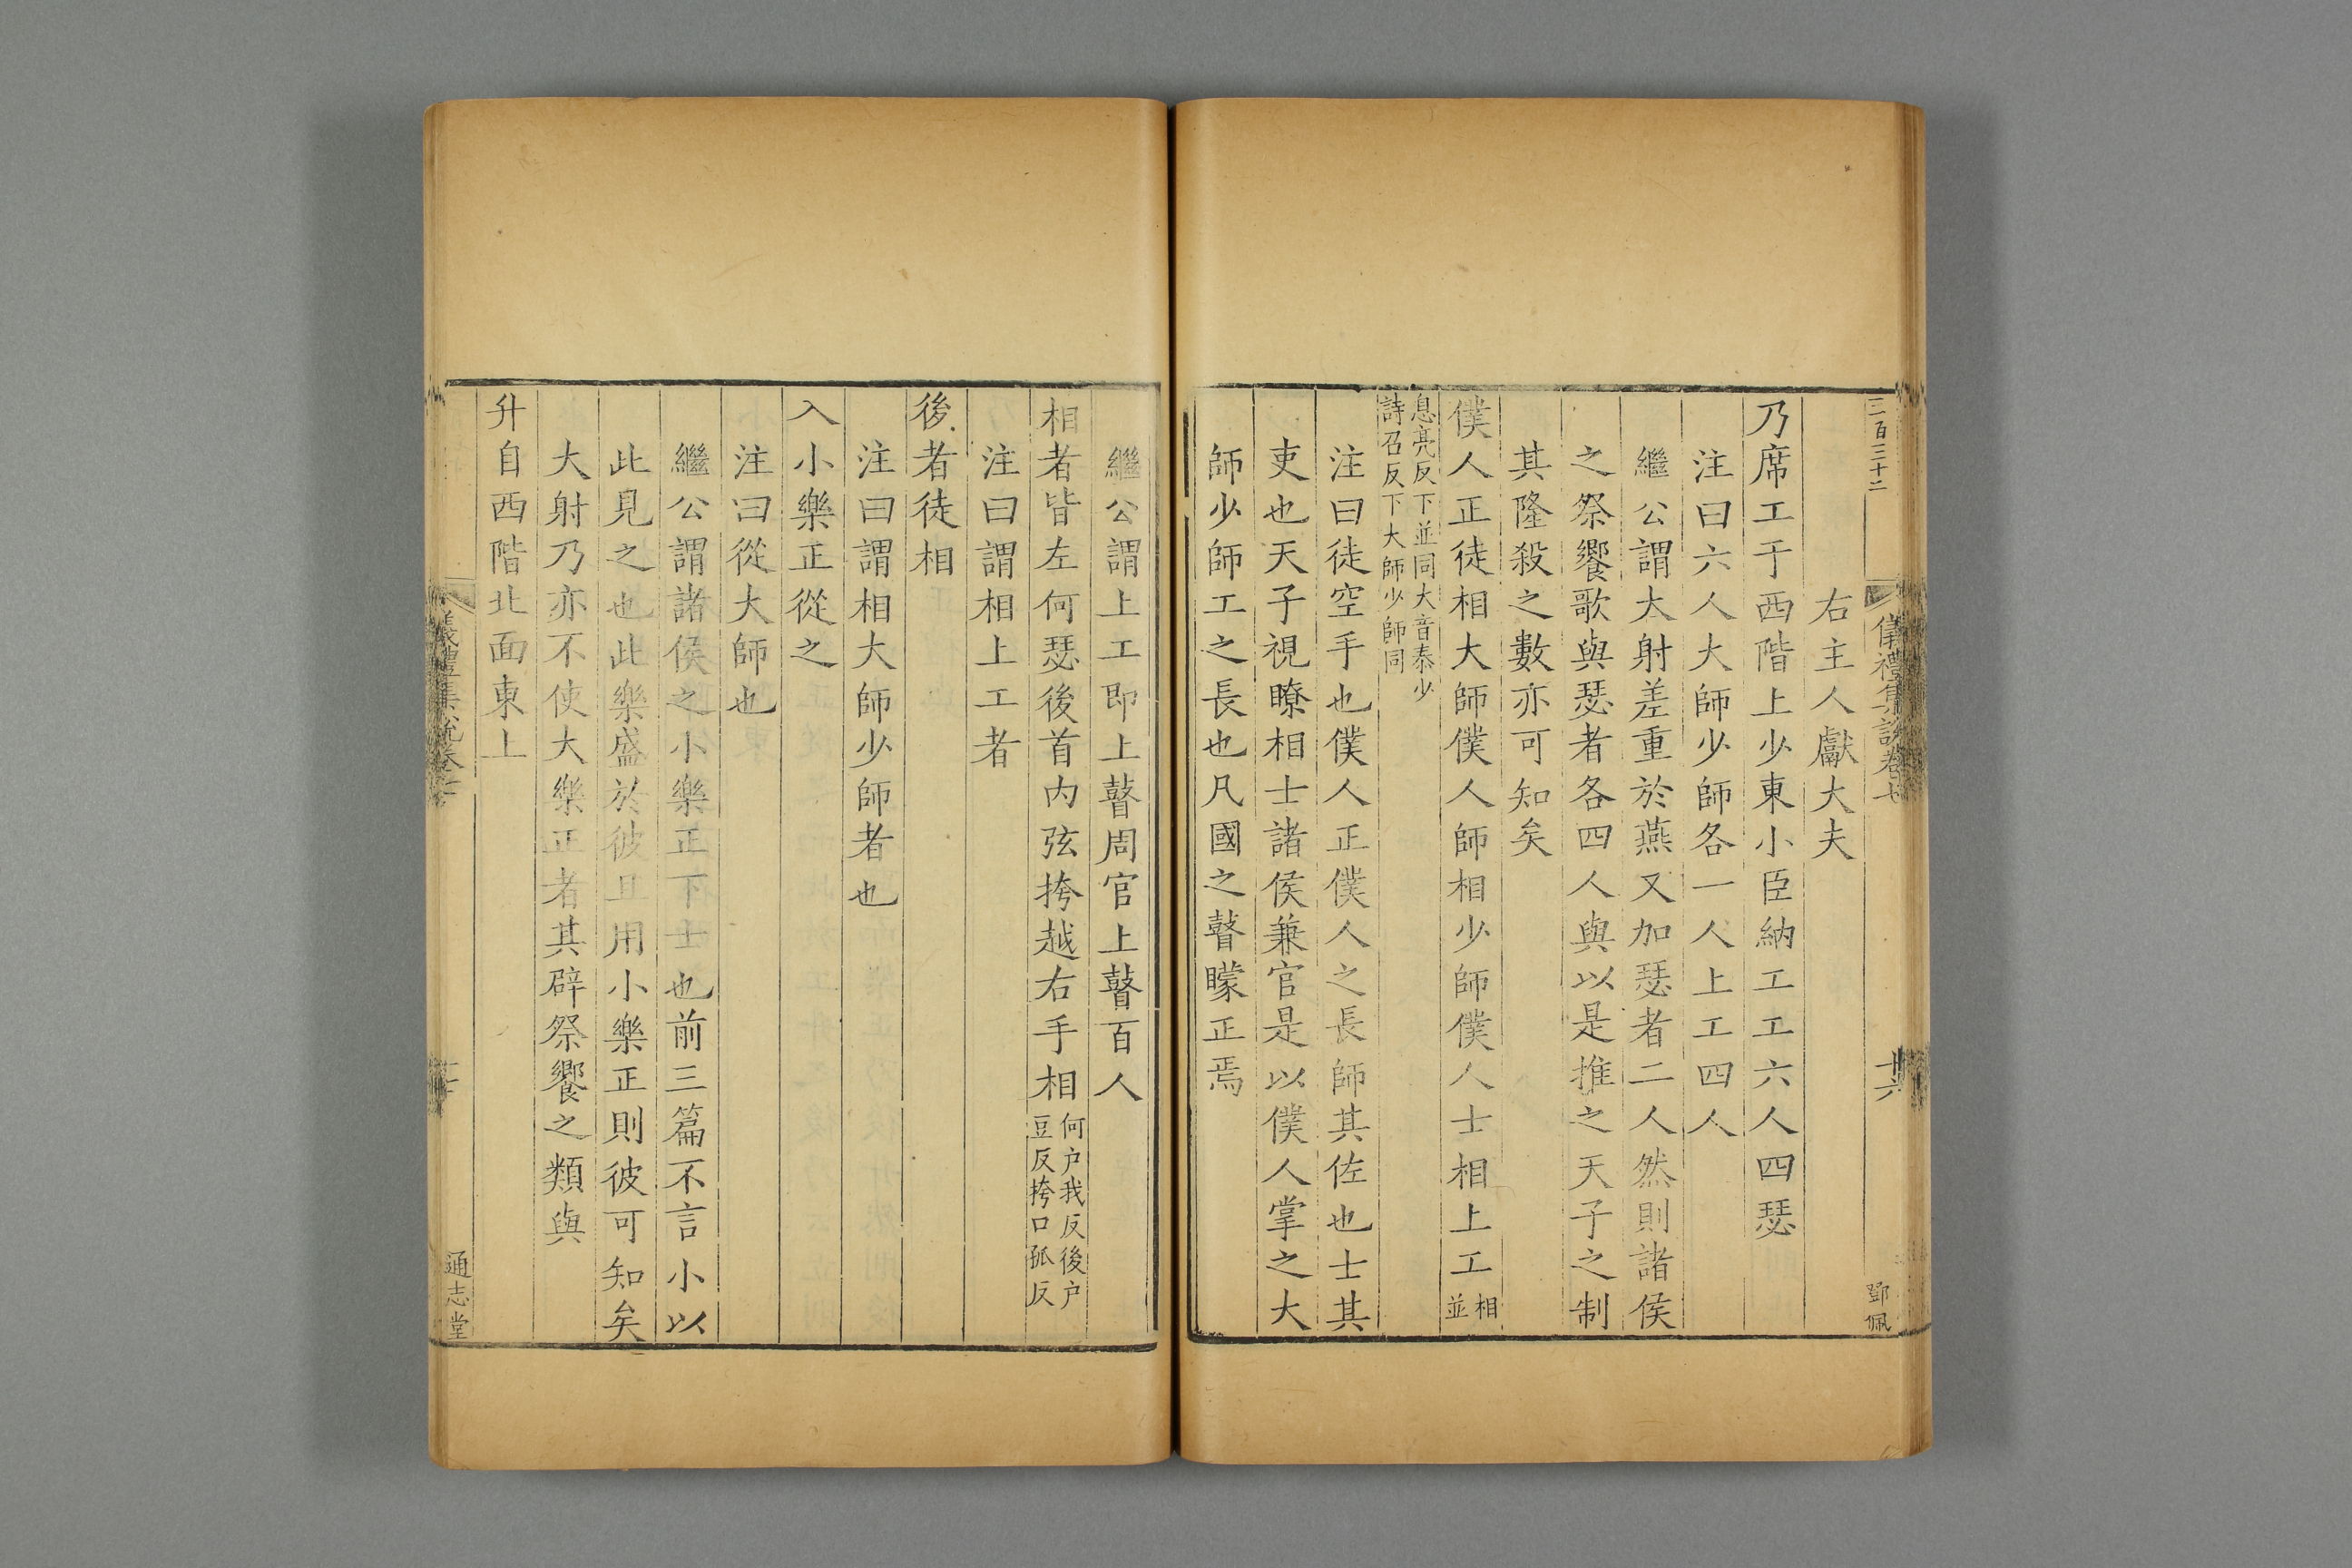 二百三十二
儀禮集說卷七
十六
鄧佩
右主人獻大夫
乃席工于西階上少東小臣納工工六人四瑟
注曰六人大師少師各一人上工四人
繼公謂大射差重於燕又加瑟者二人然則諸侯
之祭饗歌與瑟者各四人與以是推之天子之制
其隆殺之數亦可知矣
僕人正徒相大師僕人師相少師僕人士相上工相並
息亮反下並同大音泰少
詩召反下大師少師同
注曰徒空手也僕人正僕人之長師其佐也士其
吏也天子視瞭相士諸侯兼官是以僕人掌之大
師少師工之長也凡國之瞽矇正焉
繼公謂上工即上瞽周官上瞽百人
相者皆左何瑟後首内弦挎越右手相何户我反後户豆反挎口孤反
注曰謂相上工者
後者徒相
注曰謂相大師少師者也
入小樂正從之
注曰從大師也
繼公謂諸侯之小樂正下士也前三篇不言小以
此見之也此樂盛於彼且用小樂正則彼可知矣
大射乃亦不使大樂正者其辟祭饗之類與
升自西階北面東上
儀禮集說卷七
通志堂